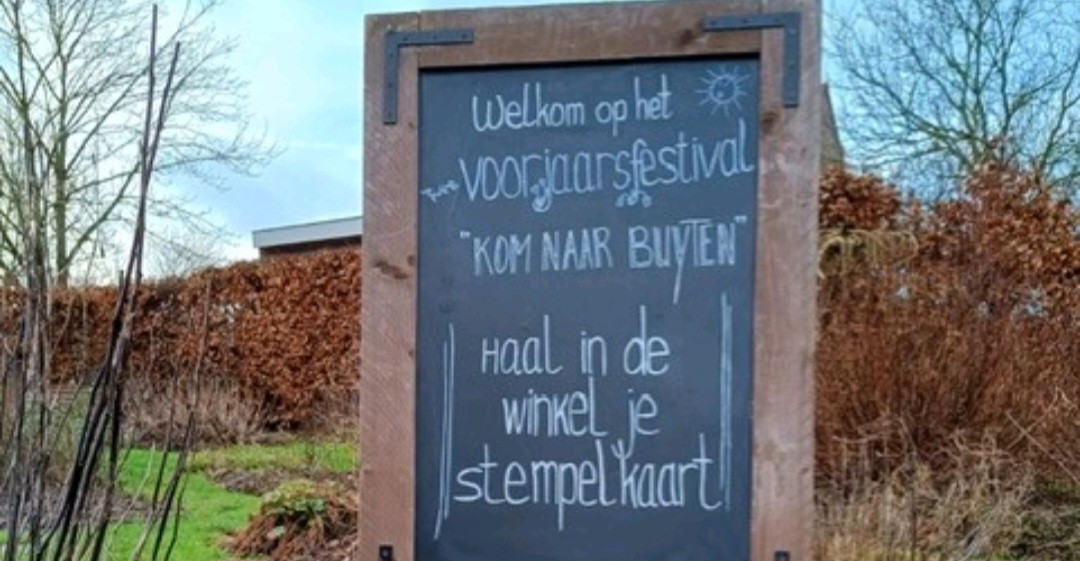 Welkom op het
voorjaarsfestival
"KOM NAAR BUYTEN"
Haal in de
winkel je
stempelkaart